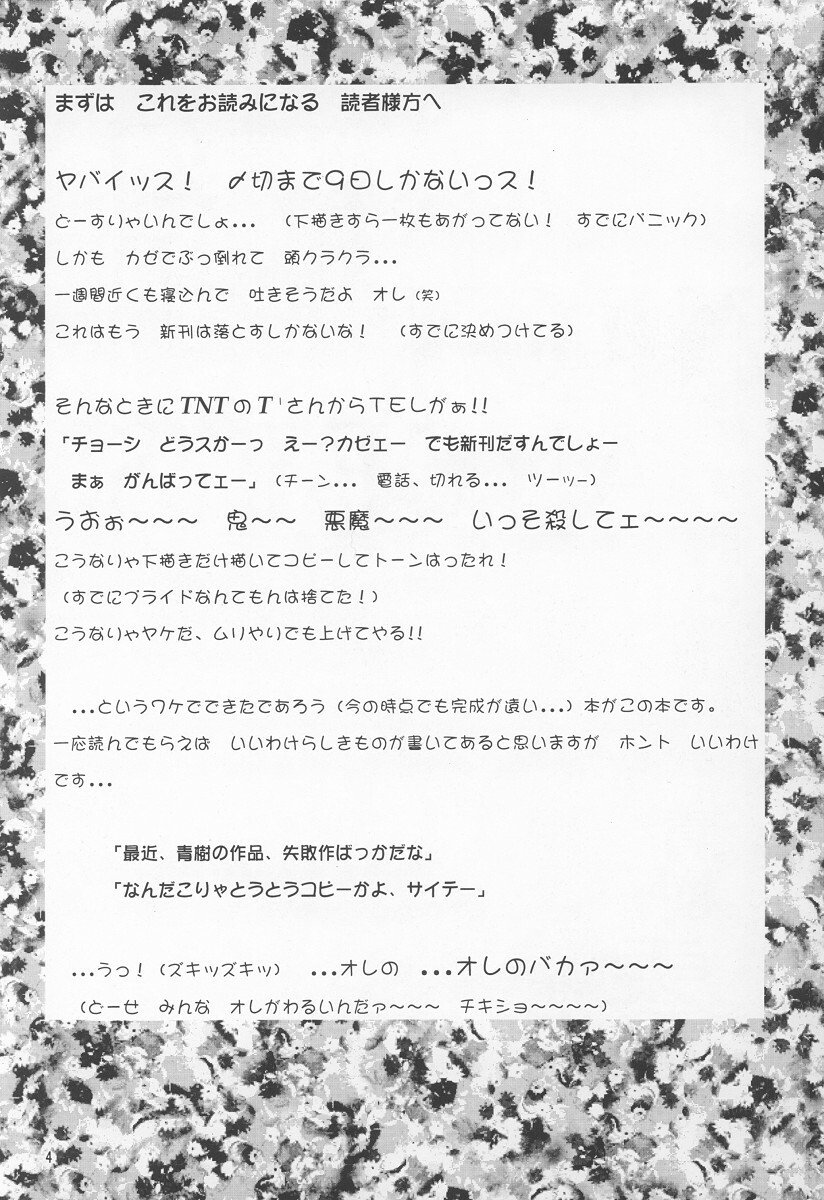 まずは　これをお読みになる　読者様方へ
ヤバイッス！　〆切まで9日しかないっス！
どーすりゃいんでしょ...　（下描きすら一枚もあがってない！　すでにパニック）
しかも　カゼでぶっ倒れて　頭クラクラ...
一週間近くも寝込んで　吐きそうだよ　オレ（笑）
これはもう　新刊は落とすしかないな！　（すでに決めつけてる）
そんなときにTNTのT'さんからTELがぁ!!
「チョーシ　どうスかーっ　えー？カゼェー　でも新刊だすんでしょー
まぁ　がんばってェー」（チーン...　電話、切れる...　ツーッー）
うおぉ～～～　鬼～～　悪魔～～～　いっそ殺してェ～～～～
こうなりゃ下描きだけ描いてコピーしてトーンはったれ！
（すでにプライドなんてもんは捨てた！）
こうなりゃヤケだ、ムリやりでも上げてやる!!
...というワケでできたであろう（今の時点でも完成が遠い...）本がこの本です。
一応読んでもらえば　いいわけらしきものが書いてあると思いますが　ホント　いいわけ
です...
「最近、青樹の作品、失敗作ばっかだな」
「なんだこりゃとうとうコピーかよ、サイテー」
...うっ！（ズキッズキッ）　...オレの　...オレのバカァ～～～
（どーせ　みんな　オレがわるいんだァ～～～　チキショ～～～～）
4